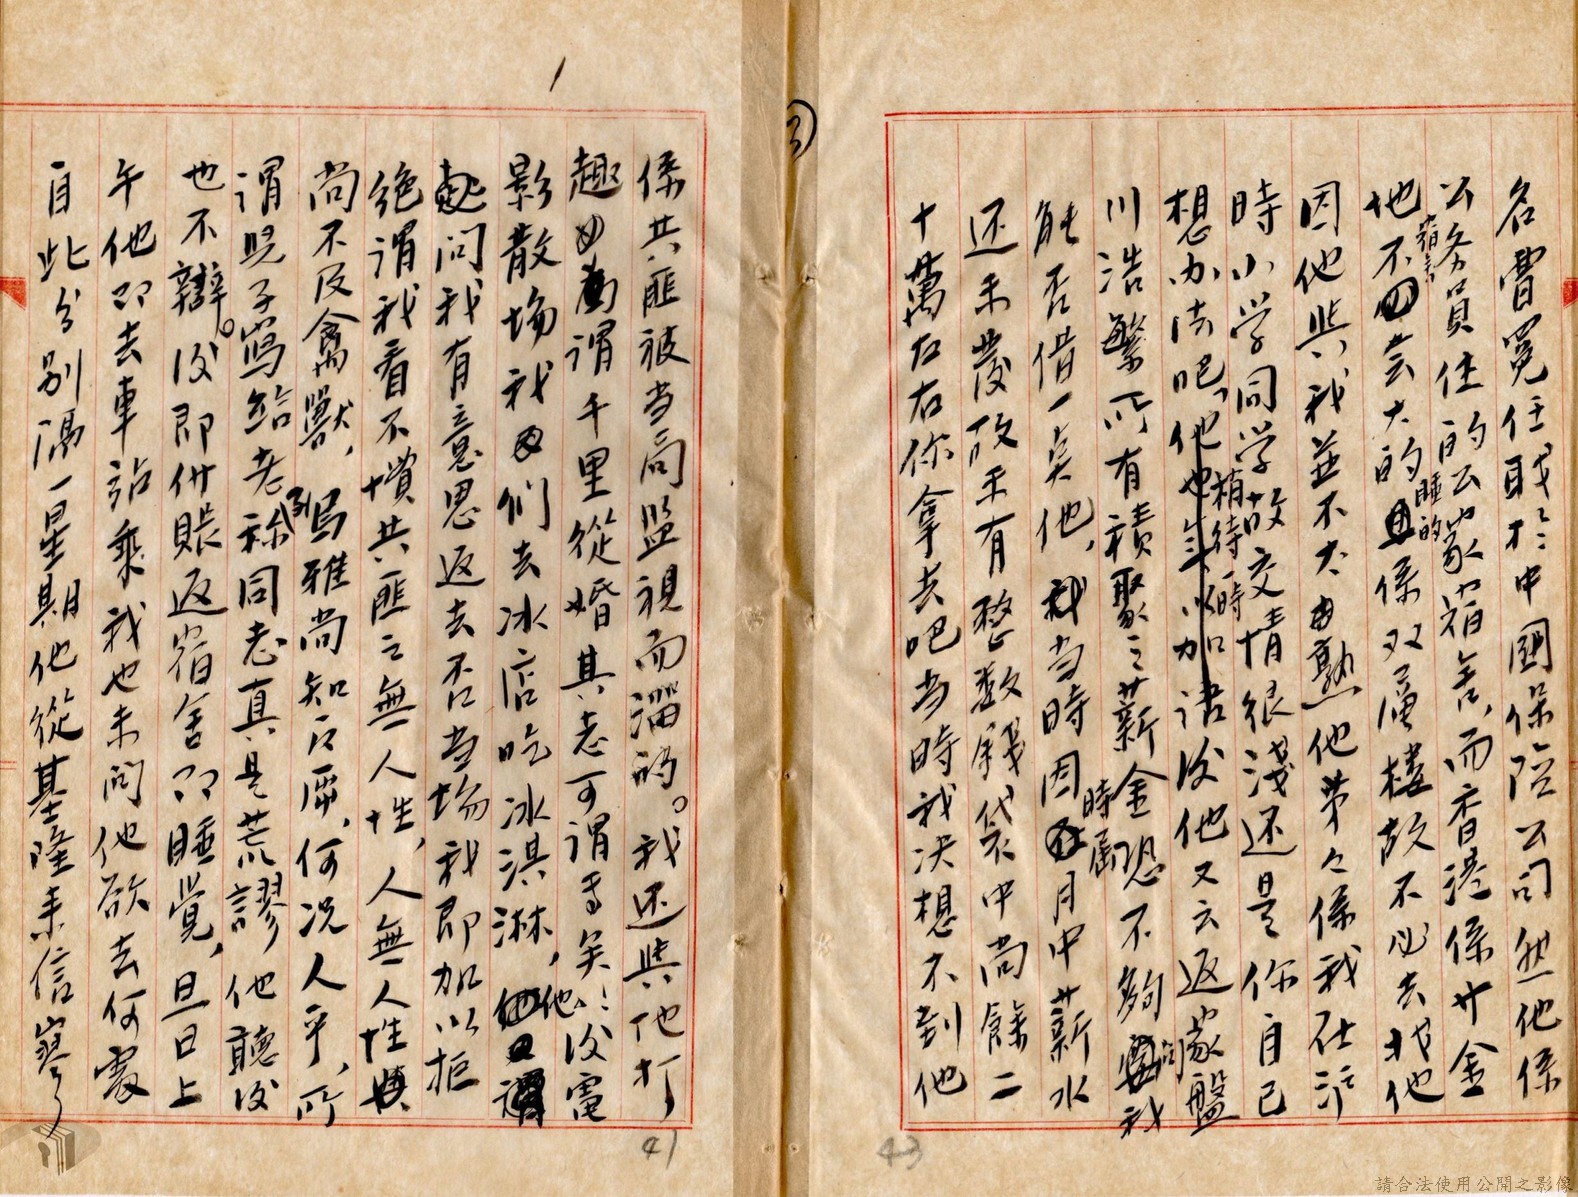 ③
名曹冕任职於中國保险公司然他係
公务員住的公家宿舍,而香港係廾金
宿舍
地不会大的睡的係双層楼故不必去找他
因他與我並不大熟他第々係我在汐
時小学同学故交情很淺还是你自己
想办法吧,稍待一時後他又云返家盤
川浩繁所有積聚之薪金恐不夠問我
能否借一点他,我当時因時屆月中薪水
还未發故未有整数錢袋中尚餘二
十萬左右你拿去吧当時我决想不到他
43
係共匪被当局监視而溜的。我还與他打
趣謂千里從婚其志可谓高矣!後電
影散場我们去冰店吃冰淇淋,他
問我有意思返去否当場我即加以拒
绝謂我看不惯共匪之無人性,人無人性
尚不及禽獸,烏雅尚知反哺,何况人乎,所
謂兒子寫給老稱到同志真是荒謬他聽後
也不辯。後即付賬返宿舍即睡觉,旦日上
午他即去車站乘我也未问他欲去何處
自此分别滆一星期他從基隆来信寥々
41
請合法使用公開之影像